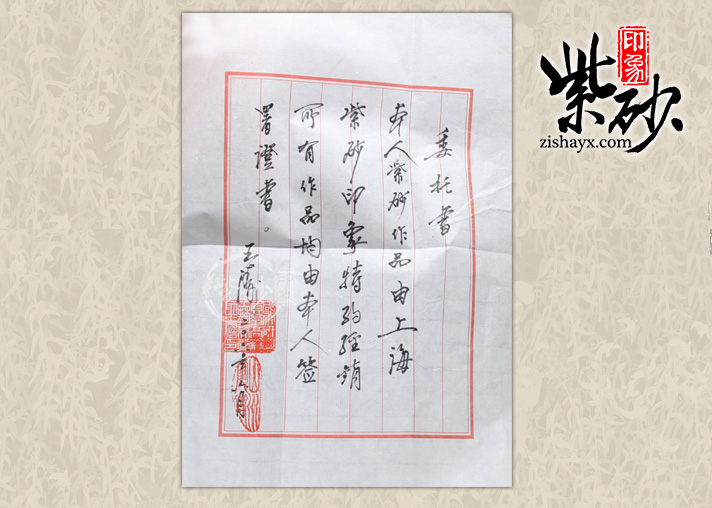 委托書
本人紫砂作品由上海
紫砂印象特约經銷
所有作品均由本人签
署證書。
王
月
印象
紫砂
zishayx.com